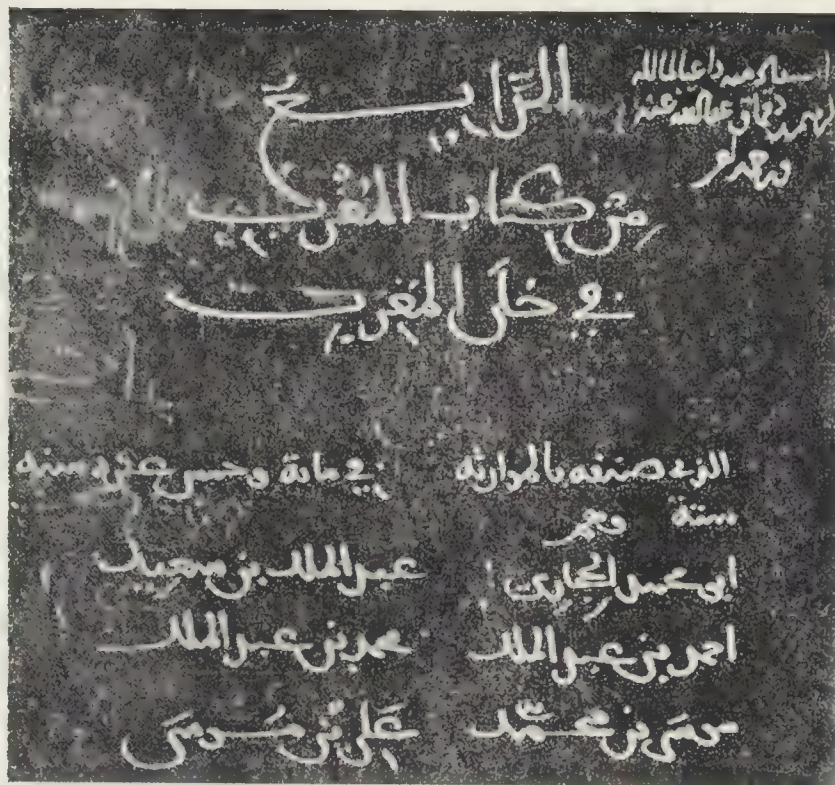 الرابع
من كتاب المغرب
في حلى المغرب
الذي صنفه بالموارثة في مائة وخمس عشرة سنة
ستة وهم
ابو محمد الحجاري عبد الملك بن سعيد
احمد بن عبد الملك محمد بن عبد الملك
موسى بن محمد علي بن موسى